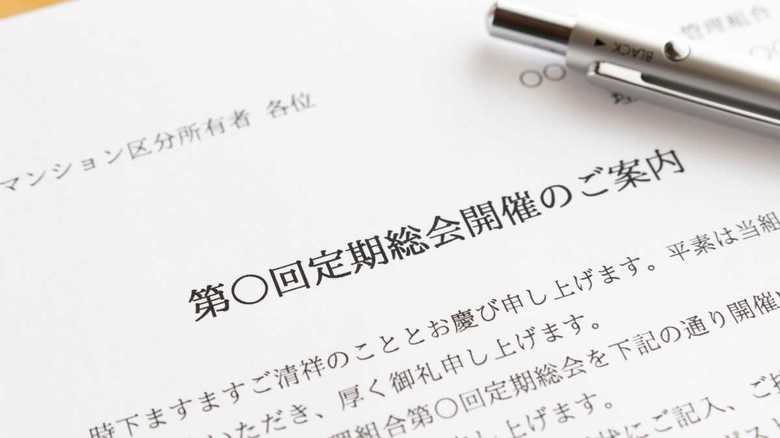 管理組合
〇〇
BLACK
マンション区分所有者 各位
第〇回定期総会開催のご案内
時下ますますご清祥のこととお慶び申し上げます。平素は当組
いただき、厚く御礼申し上げます。
理組合第〇回定期総会を下記の通り開催
申し上げます。
状にご記入、ご